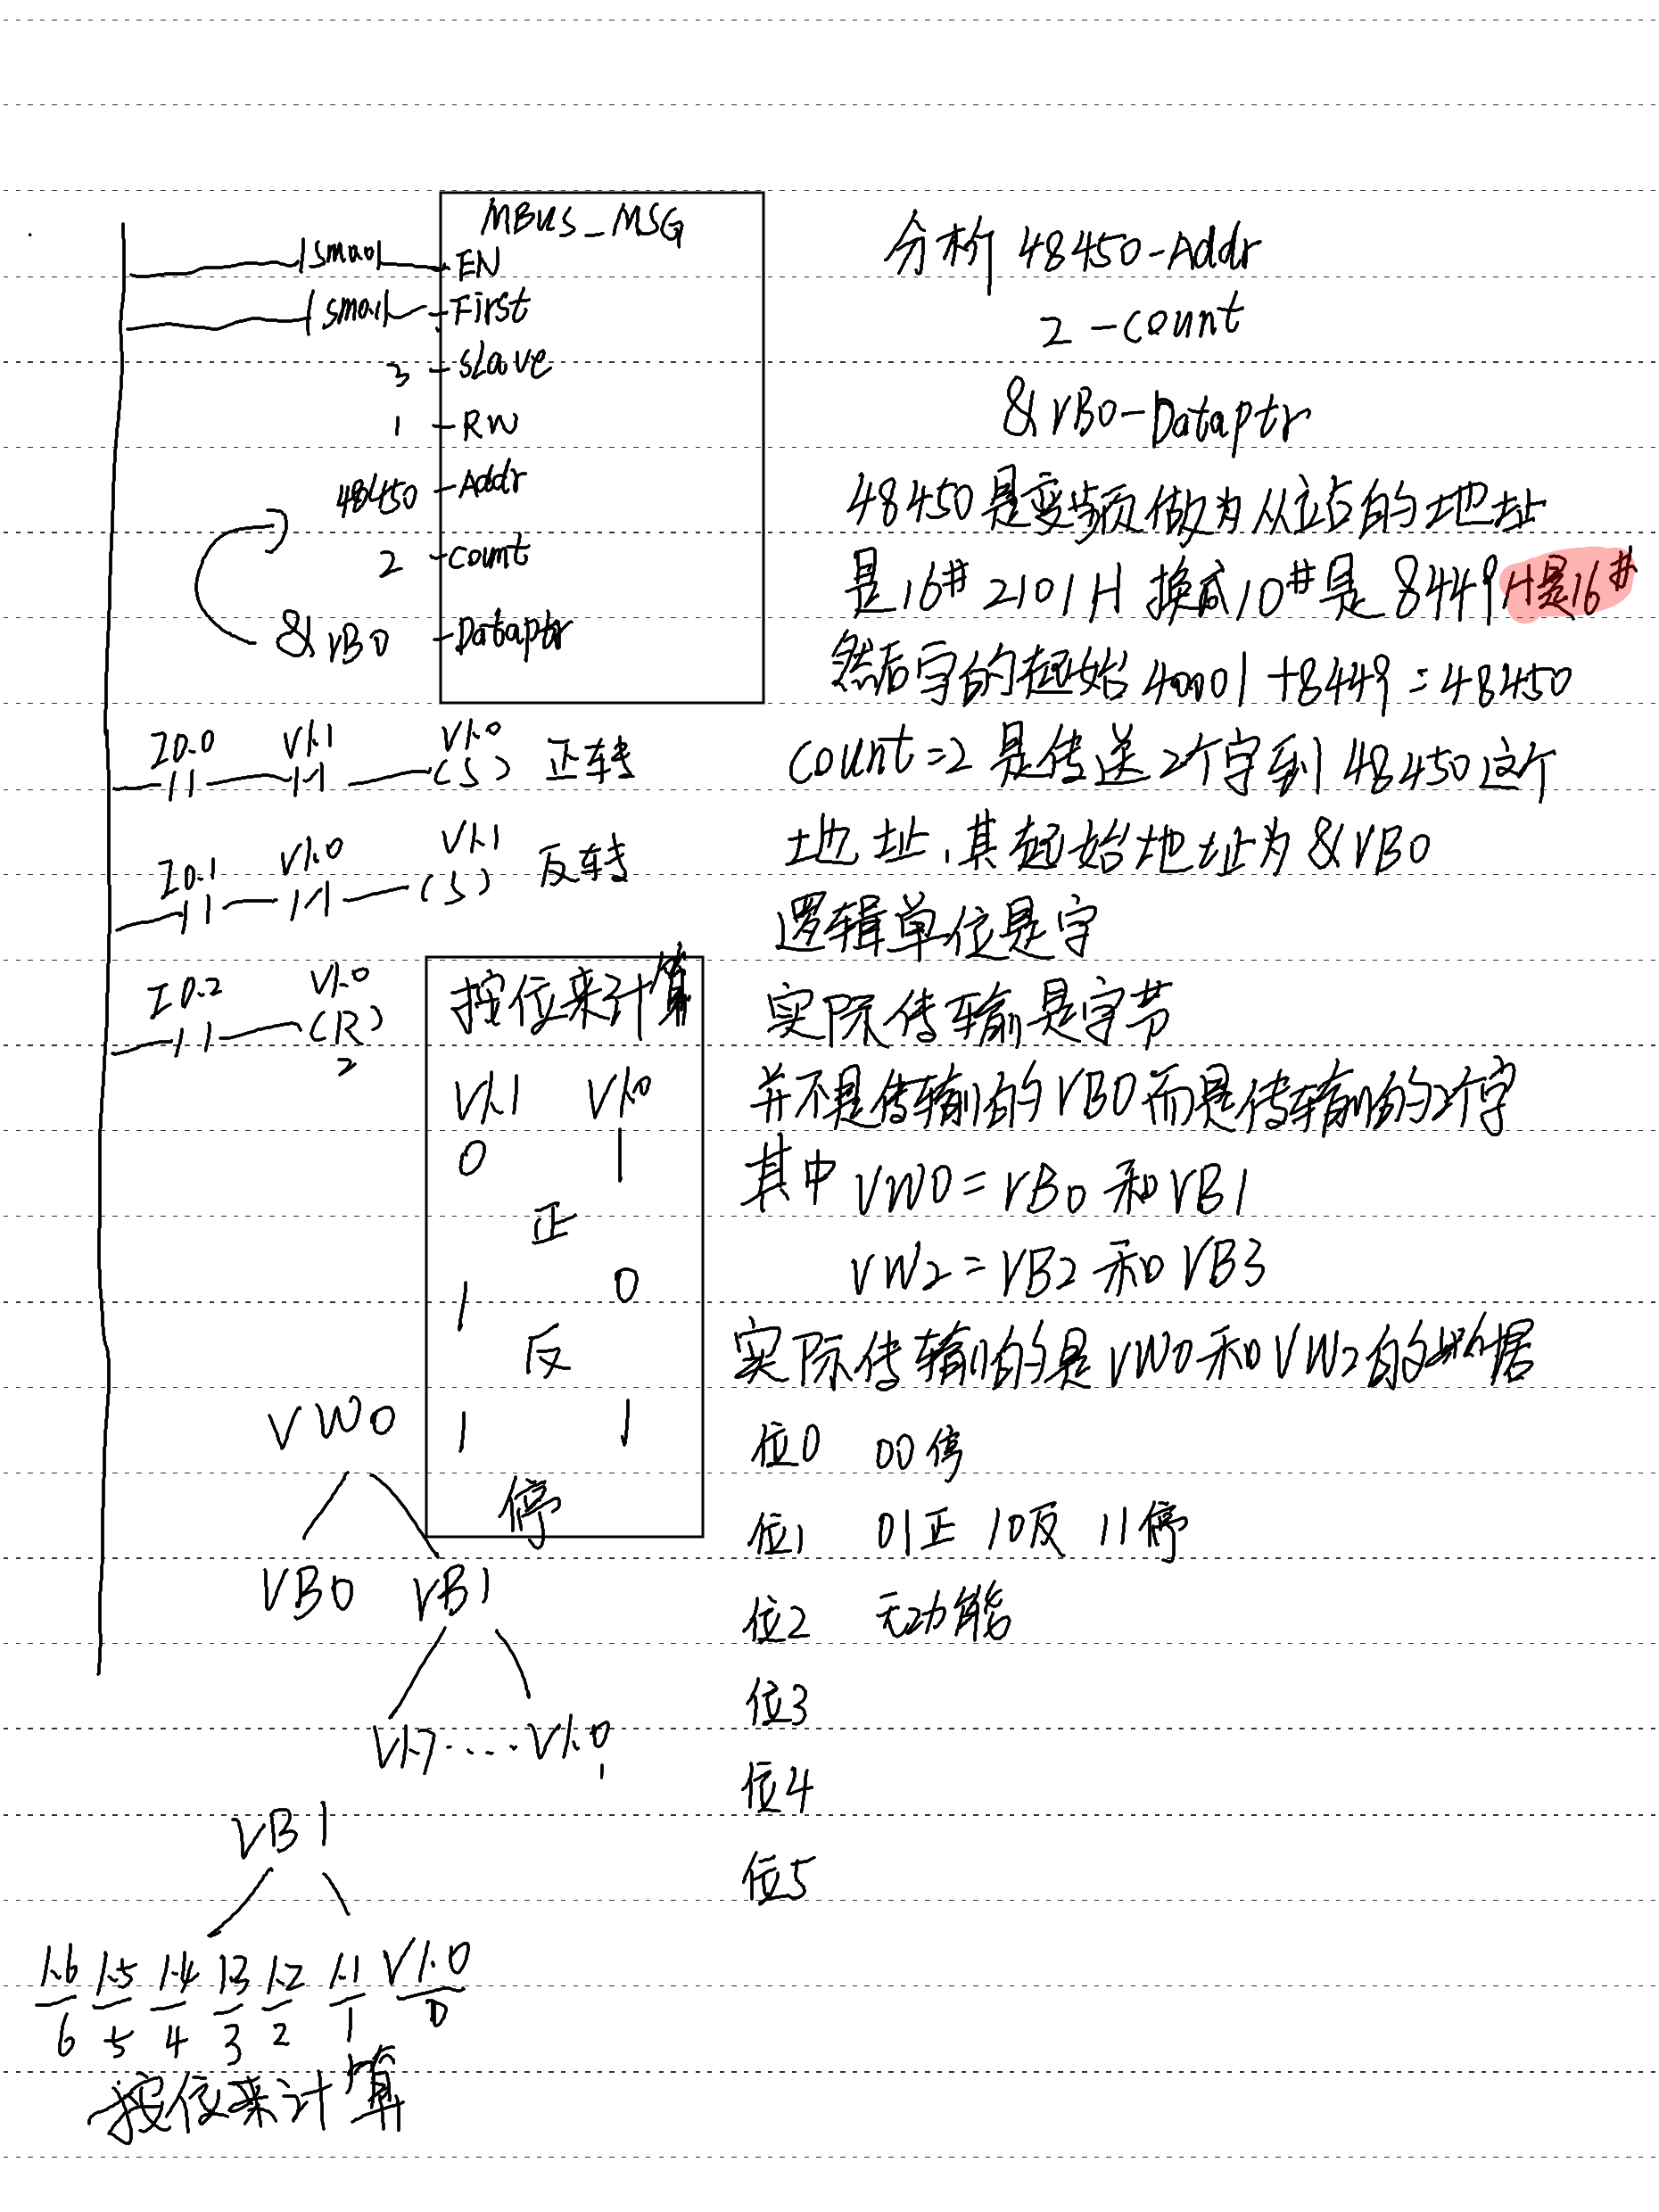 MBUS_MSG
SM0.0 EN
SM0.1 First
3 slave
1 RW
48450 Addr
2 count
&VB0 Dataptr
I0.0 V1.1 V1.0 (S) 正转
I0.1 V1.0 V1.1 (S) 反转
I0.2 V1.0 (R) 2
按位来计算
V1.1 V1.0
0 1
正
1 0
反
1 1
停
VW0
VB0 VB1
V1.7....V1.0
VB1
1.6 1.5 1.4 1.3 1.2 1.1 V1.0
6 5 4 3 2 1 0
按位来计算
分析 48450-Addr
2-count
&VB0-Dataptr
48450是变频做为从站的地址
是16# 2101H 换成10#是 8449 H是16#
然后字的起始 40001+8449=48450
count=2 是传送2个字到48450这个
地址,其起始地址为&VB0
逻辑单位是字
实际传输是字节
并不是传输的VB0而是传输的2个字
其中 VW0=VB0 和 VB1
VW2=VB2 和 VB3
实际传输的是VW0和VW2的数据
位0 00停
位1 01正 10反 11停
位2 无功能
位3
位4
位5